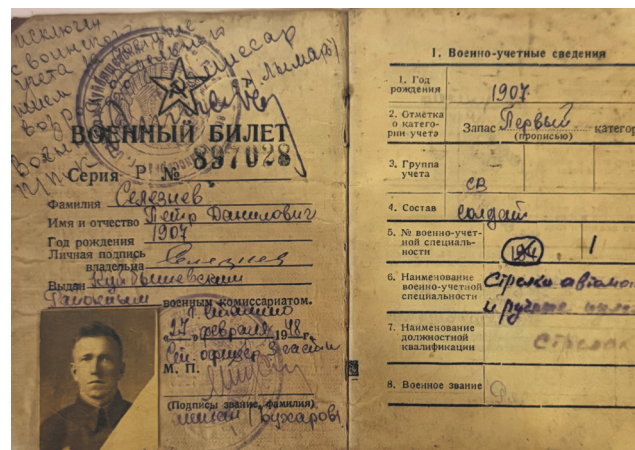 исключен
с воинского
учета
возр
Лымарь
ВОЕННЫЙ БИЛЕТ
Серия Р № 897028
Фамилия Селезнев
Имя и отчество Петр Данилович
Год рождения 1907
Личная подпись
владельца Селезнев
Выдан Куйбышевским
Районным военным комиссариатом.
г. Сталино
27 февраля 1948 г.
М. П.
(Подпись звание, фамилия)
(Бухаров)
1. Военно-учетные сведения
1. Год
рождения 1907
2. Отметка
о катего-
рии учета Запас Первый катего
(прописью)
3. Группа
учета СВ
4. Состав солдат
5. № военно-учет-
ной специаль-
ности 1
6. Наименование
военно-учетной
специальности Стрелки автом
и ручные пуле
7. Наименование
должностной
квалификации Стрелок
8. Военное звание